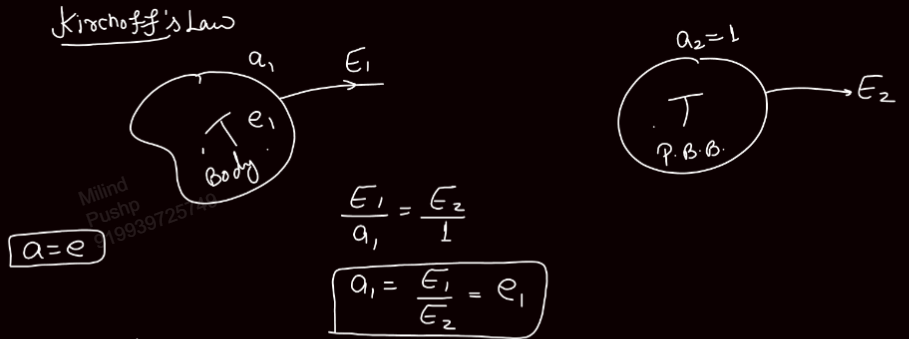 Kirchoff's Law
a₁
E₁
T e₁
Body
a₂=1
T
P.B.B.
E₂
Milind
Pushp
a=e
E₁/a₁ = E₂/1
a₁ = E₁/E₂ = e₁